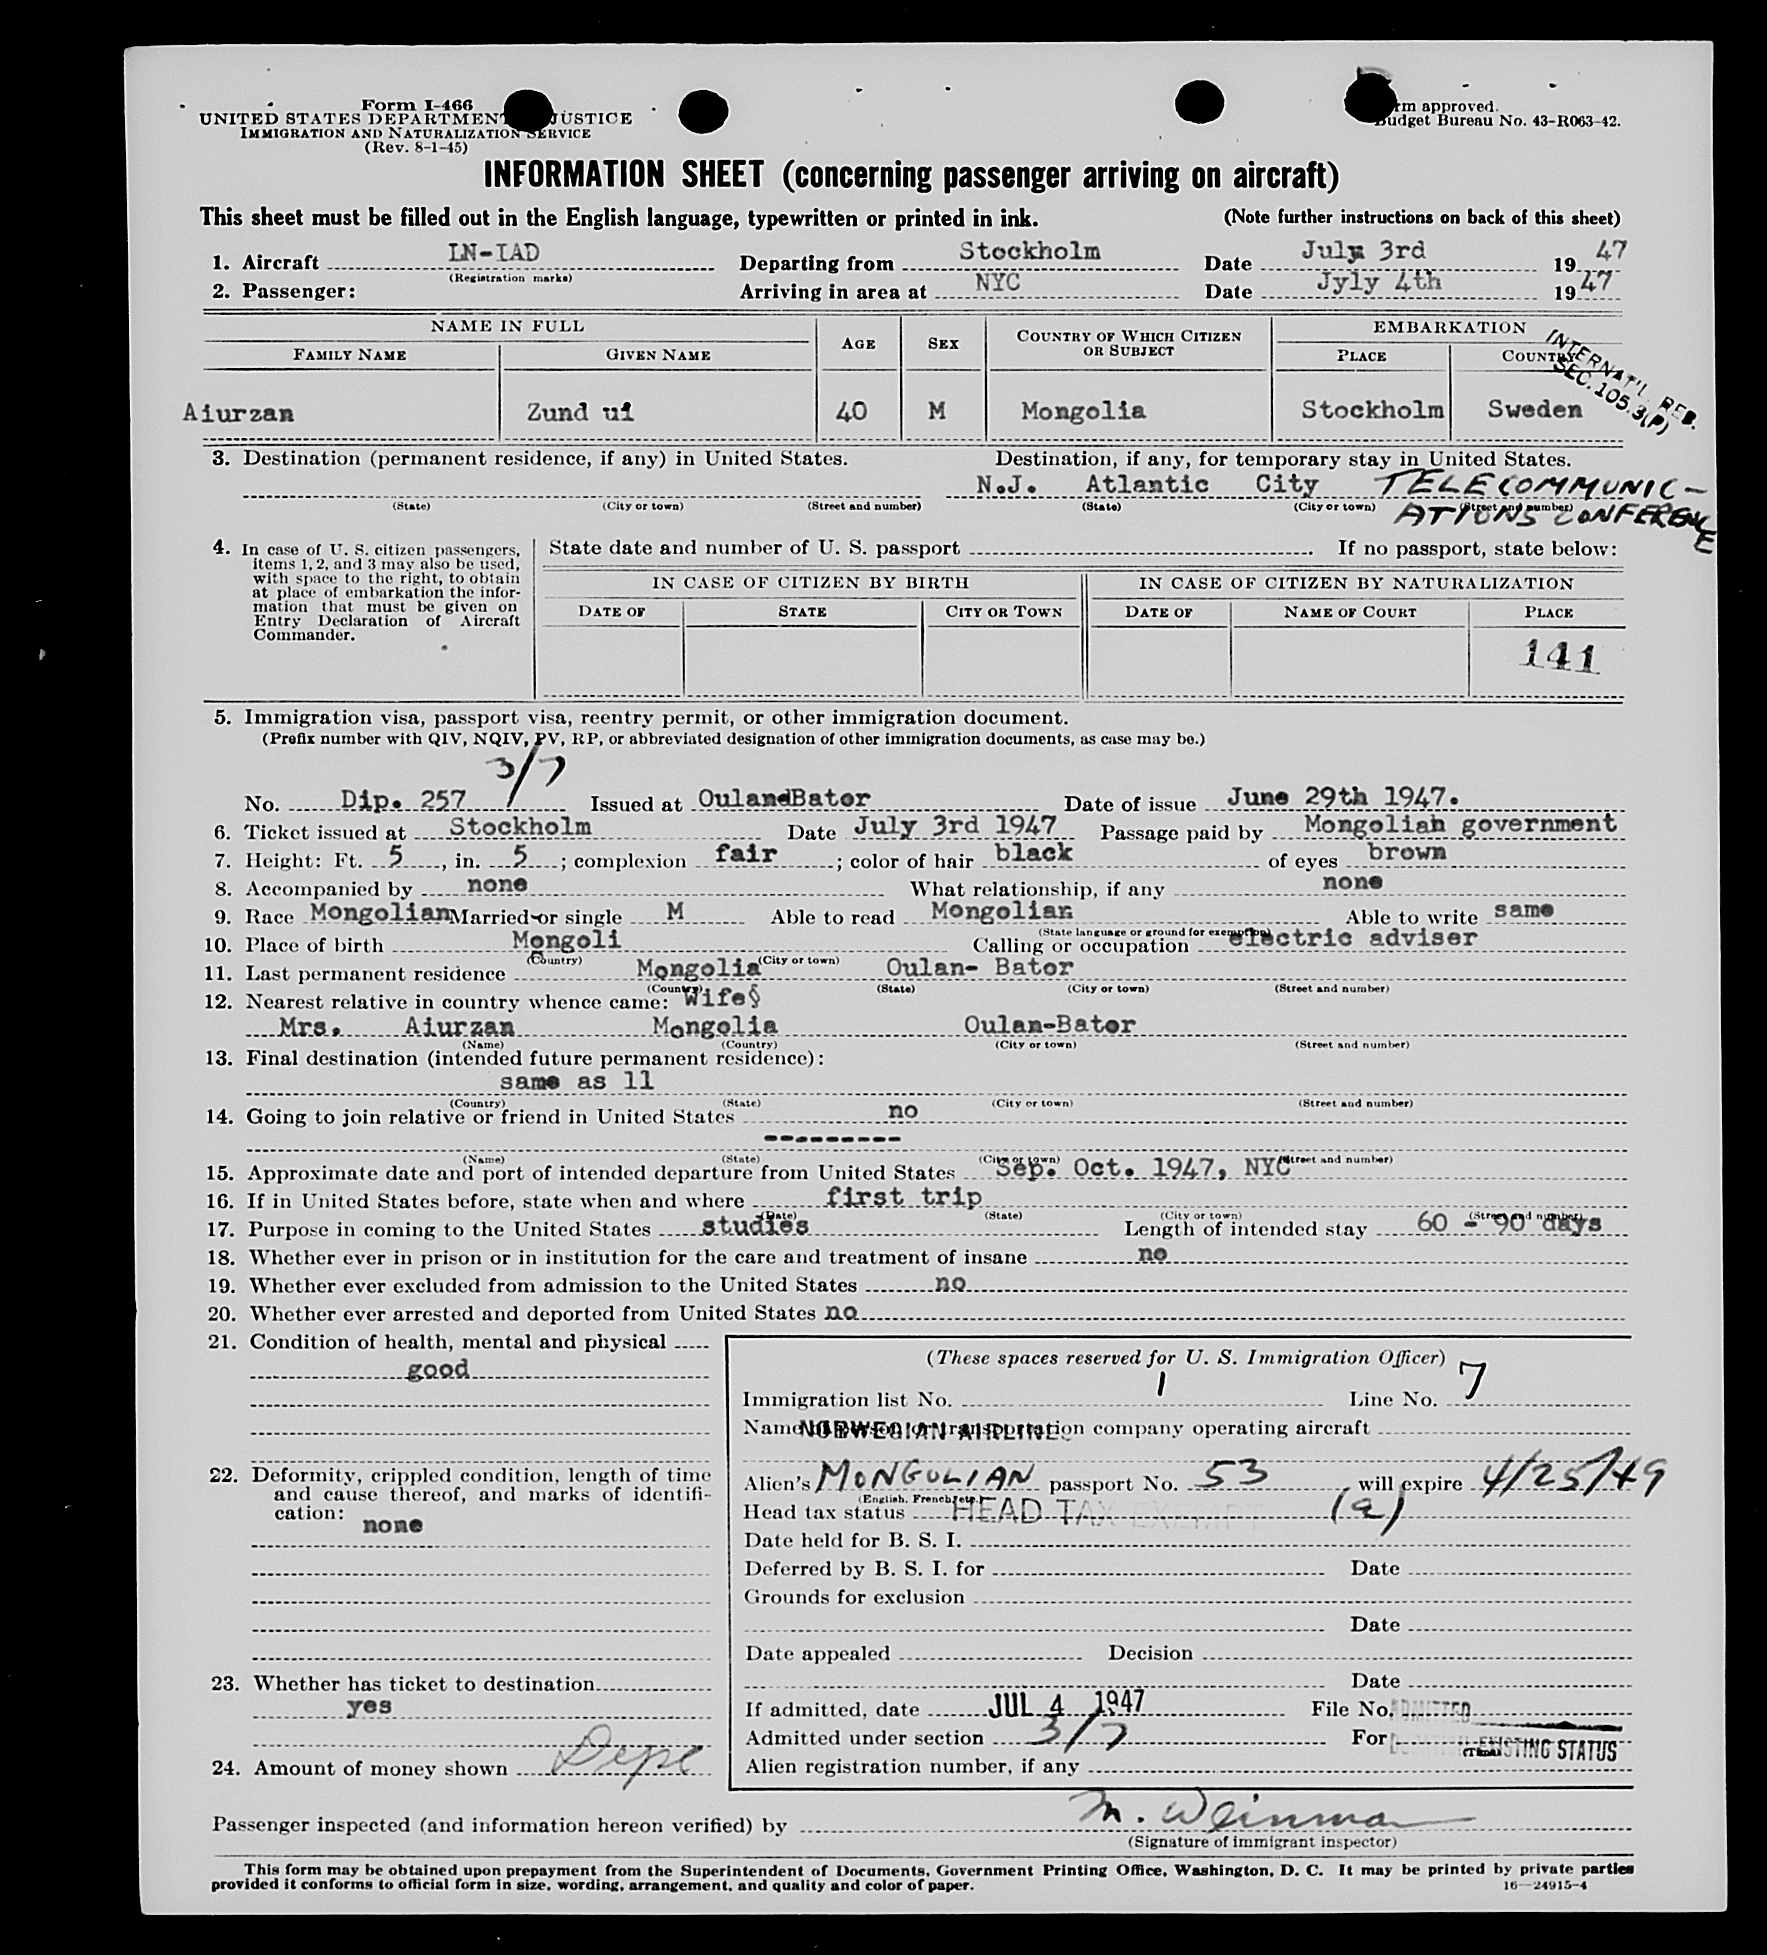 Form I-466
UNITED STATES DEPARTMENT JUSTICE
IMMIGRATION AND NATURALIZATION SERVICE
(Rev. 8-1-45)
rm approved.
Budget Bureau No. 43-R063-42.
INFORMATION SHEET (concerning passenger arriving on aircraft)
This sheet must be filled out in the English language, typewritten or printed in ink. (Note further instructions on back of this sheet)
1. Aircraft LN-IAD Departing from Stockholm Date July 3rd 1947
(Registration marks)
2. Passenger: Arriving in area at NYC Date Jyly 4th 1947
NAME IN FULL AGE SEX COUNTRY OF WHICH CITIZEN OR SUBJECT EMBARKATION
FAMILY NAME GIVEN NAME PLACE COUNTRY
INTERNAT'L REG.
SEC. 105.3(P)
Aiurzan Zund ui 40 M Mongolia Stockholm Sweden
3. Destination (permanent residence, if any) in United States. Destination, if any, for temporary stay in United States.
N.J. Atlantic City TELECOMMUNIC-
(State) (City or town) (Street and number) (State) (City or town) (Street and number)
ATIONS CONFERENCE
4. In case of U. S. citizen passengers, items 1, 2, and 3 may also be used, with space to the right, to obtain at place of embarkation the information that must be given on Entry Declaration of Aircraft Commander.
State date and number of U. S. passport If no passport, state below:
IN CASE OF CITIZEN BY BIRTH IN CASE OF CITIZEN BY NATURALIZATION
DATE OF STATE CITY OR TOWN DATE OF NAME OF COURT PLACE
141
5. Immigration visa, passport visa, reentry permit, or other immigration document.
(Prefix number with QIV, NQIV, PV, RP, or abbreviated designation of other immigration documents, as case may be.)
3/7
No. Dip. 257 Issued at OulandBator Date of issue June 29th 1947.
6. Ticket issued at Stockholm Date July 3rd 1947 Passage paid by Mongolian government
7. Height: Ft. 5, in. 5; complexion fair; color of hair black of eyes brown
8. Accompanied by none What relationship, if any none
9. Race Mongolian Married or single M Able to read Mongolian Able to write same
(State language or ground for exemption)
10. Place of birth Mongoli Calling or occupation electric adviser
(Country) (City or town)
11. Last permanent residence Mongolia Oulan- Bator
(Country) (State) (City or town) (Street and number)
12. Nearest relative in country whence came: Wife§
Mrs. Aiurzan Mongolia Oulan-Bator
(Name) (Country) (City or town) (Street and number)
13. Final destination (intended future permanent residence):
same as 11
(Country) (State) (City or town) (Street and number)
14. Going to join relative or friend in United States no
---------
(Name) (State) (City or town) (Street and number)
15. Approximate date and port of intended departure from United States Sep. Oct. 1947, NYC
16. If in United States before, state when and where first trip
(Date) (State) (City or town) (Street and number)
17. Purpose in coming to the United States studies Length of intended stay 60 - 90 days
18. Whether ever in prison or in institution for the care and treatment of insane no
19. Whether ever excluded from admission to the United States no
20. Whether ever arrested and deported from United States no
21. Condition of health, mental and physical
good
22. Deformity, crippled condition, length of time and cause thereof, and marks of identification:
none
23. Whether has ticket to destination
yes
24. Amount of money shown
(These spaces reserved for U. S. Immigration Officer)
Immigration list No. 1 Line No. 7
Name of person or transportation company operating aircraft
NORWEGIAN AIRLINES
Alien's MONGOLIAN passport No. 53, will expire 4/25/49
(English, French, etc.)
Head tax status HEAD TAX EXEMPT (a)
Date held for B. S. I.
Deferred by B. S. I. for Date
Grounds for exclusion
Date
Date appealed Decision
Date
If admitted, date JUL 4 1947 File No. ADMITTED
Admitted under section 3/7 For
(Time) EXISTING STATUS
Alien registration number, if any
Passenger inspected (and information hereon verified) by M. Weinman
(Signature of immigrant inspector)
This form may be obtained upon prepayment from the Superintendent of Documents, Government Printing Office, Washington, D. C. It may be printed by private parties
provided it conforms to official form in size, wording, arrangement, and quality and color of paper. 16—24915-4